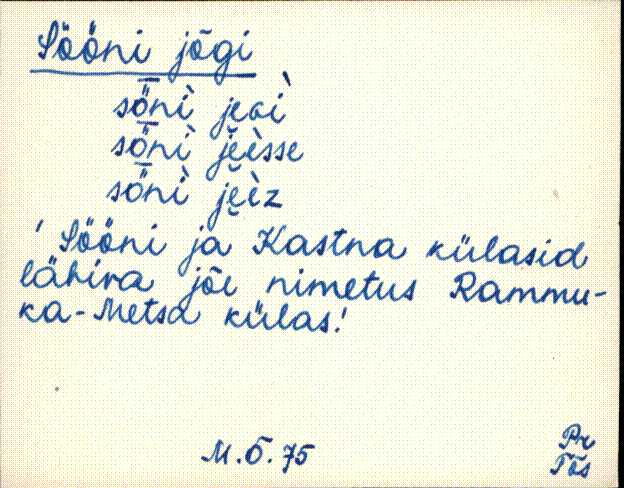 Sööni jõgi
sȫ̀nì jeɢì
sȫ̀nì jĕèsse
sȫ̀nì jĕèz
' Sööni ja Kastna külasid
läbiva jõe nimetus Rammu-
ka-Metsa külas!
M. Õ. 75
Pr
Tõs